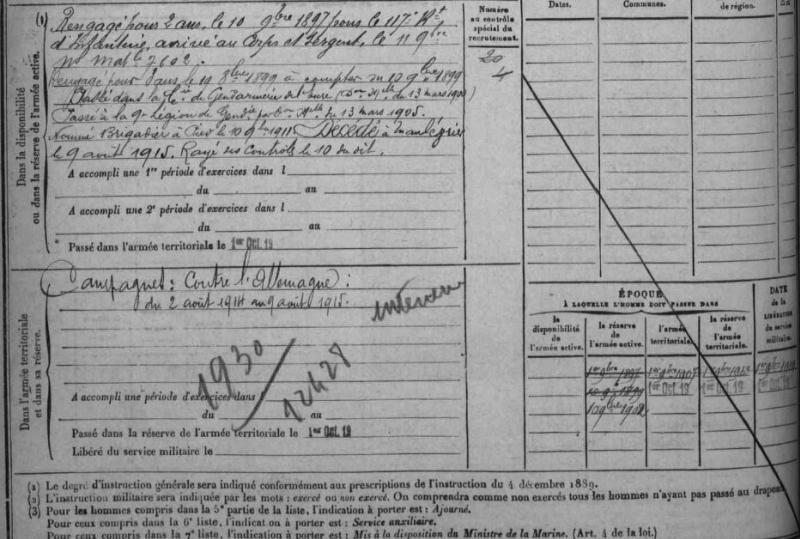 (1) Rengagé pour 2 ans, le 10 9bre 1897 pour le 117e Rt
d'Infanterie, arrivé au Corps et Sergent, le 11 9bre
No Matle 7602.
Rengagé pour 5 ans le 19 8bre 1899 à compter du 10 9bre 1899
dans la Cie de Gendarmerie de l'Eure (Don Mlle du 13 mars 1900)
Passé à la 9e Légion de Gendie par Mlle du 13 mars 1905.
Nommé Brigadier à Pied le 10 9bre 1911. Décédé à
le 9 août 1915. Rayé des Contrôles le 10 du dit.
Dans la disponibilité
ou dans la réserve de l'armée active.
A accompli une 1re période d'exercices dans l
du au
A accompli une 2e période d'exercices dans l
du au
Passé dans l'armée territoriale le 1er Oct. 19
Numéro
au contrôle
spécial du
recrutement.
20
4
Dates.
Communes.
de région.
Campagnes: Contre l'Allemagne:
du 2 août 1914 au 9 août 1915.
1930
12428
Dans l'armée territoriale
et dans sa réserve.
A accompli une période d'exercices dans l
du au
Passé dans la réserve de l'armée territoriale le 1er Oct. 19
Libéré du service militaire le
ÉPOQUE
À LAQUELLE L'HOMME DOIT PASSER DANS
la disponibilité de l'armée active.
la réserve de l'armée active.
l'armée territoriale.
la réserve de l'armée territoriale.
DATE de la LIBÉRATION du service militaire.
1er 9bre 1897 1er 9bre 1907
10 9bre 1899 1er Oct. 19 1er Oct. 19 1er Oct. 19
10 9bre 1902
(1) Le degré d'instruction générale sera indiqué conformément aux prescriptions de l'instruction du 4 décembre 1889.
(2) L'instruction militaire sera indiquée par les mots : exercé ou non exercé. On comprendra comme non exercés tous les hommes n'ayant pas passé au drapeau
(3) Pour les hommes compris dans la 5e partie de la liste, l'indication à porter est : Ajourné.
Pour ceux compris dans la 6e liste, l'indication à porter est : Service auxiliaire.
Pour ceux compris dans la 7e liste, l'indication à porter est : Mis à la disposition du Ministre de la Marine. (Art. 4 de la loi.)